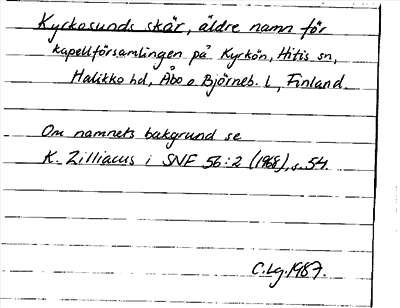 Kyrkosunds skär, äldre namn för
kapellförsamlingen på Kyrkön, Hitis sn,
Halikko hd, Åbo o. Björneb. l, Finland.
Om namnets bakgrund se
K. Zilliacus i SNF 56:2 (1968), s. 54.
C. Lg. 1987.